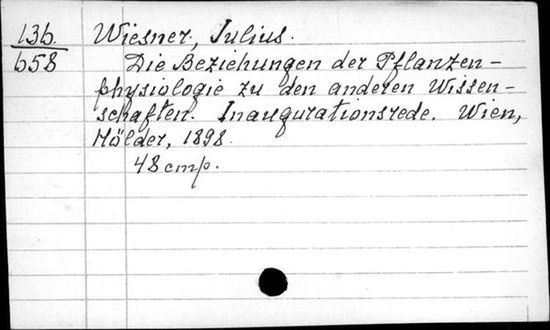 136. Wiesner, Julius.
658 Die Beziehungen der Pflanzen-
physiologie zu den anderen Wissen-
schaften. Inaugurationsrede. Wien,
Hölder, 1898.
48 cmp.